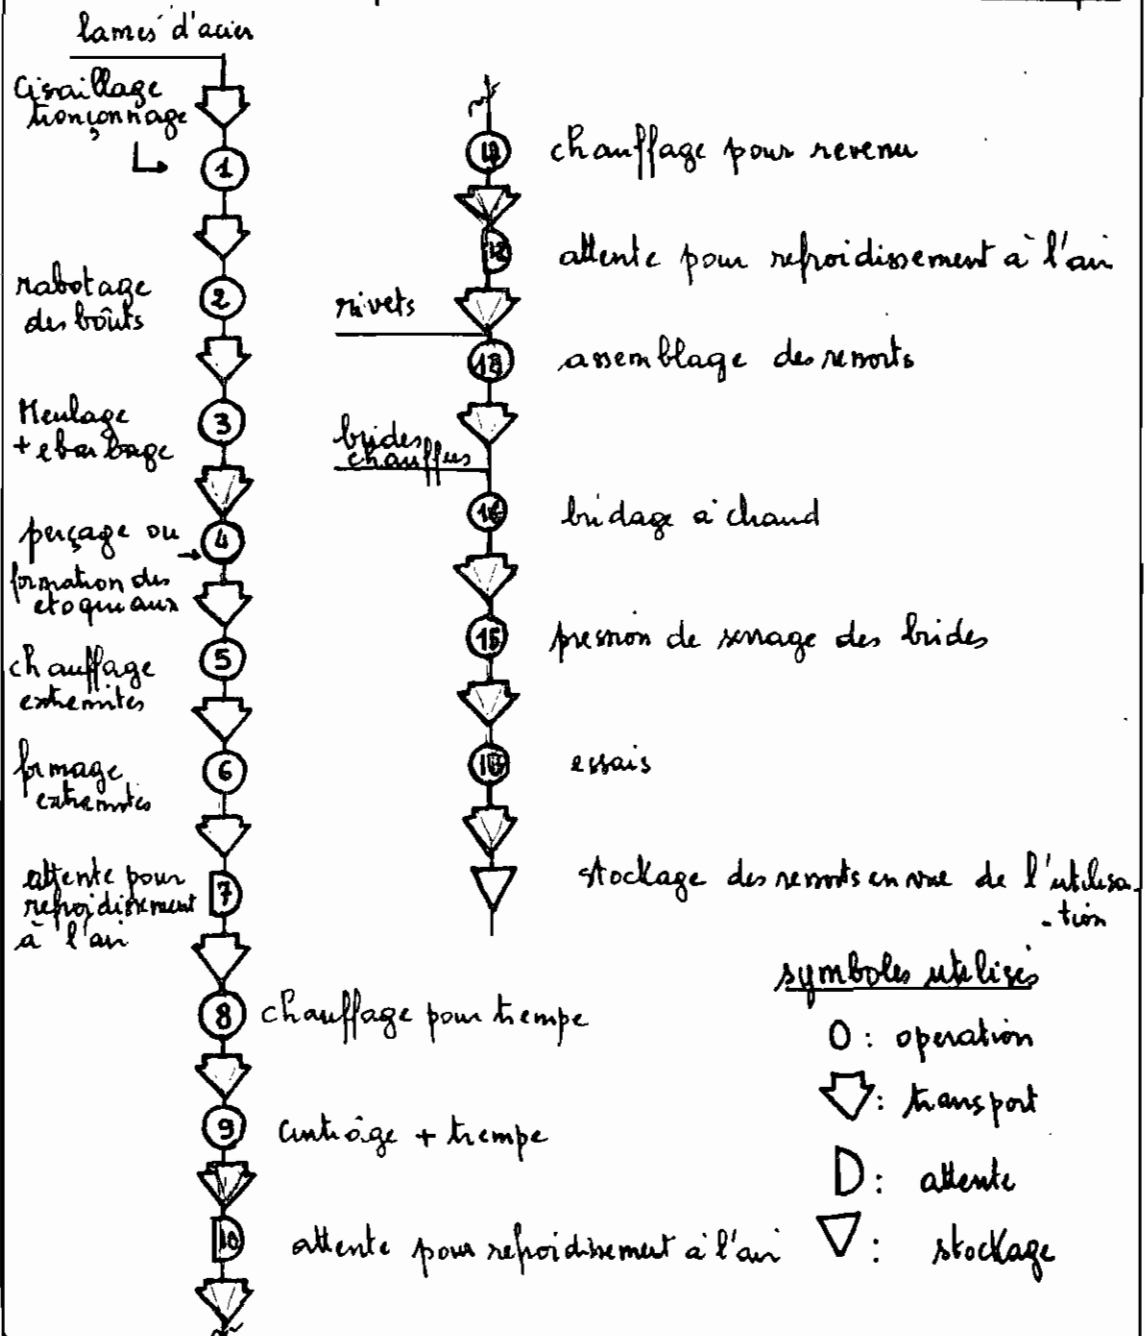 lames d'acier
Cisaillage
tronçonnage
1
rabotage
des boûts
2
Meulage
+ ebarbage
3
perçage ou
formation des
etoquiaux
4
chauffage
extremites
5
formage
extremités
6
attente pour
refroidissement
à l'air
7
8 chauffage pour trempe
9 cintrâge + trempe
10 attente pour refroidissement à l'air
11 chauffage pour revenu
12 attente pour refroidissement à l'air
rivets
13 assemblage des ressorts
brides
chauffees
14 bridage à chaud
15 pression de serrage des brides
16 essais
stockage des ressorts en vue de l'utilisa-
-tion
symboles utilisés
O : operation
: transport
D : attente
: stockage